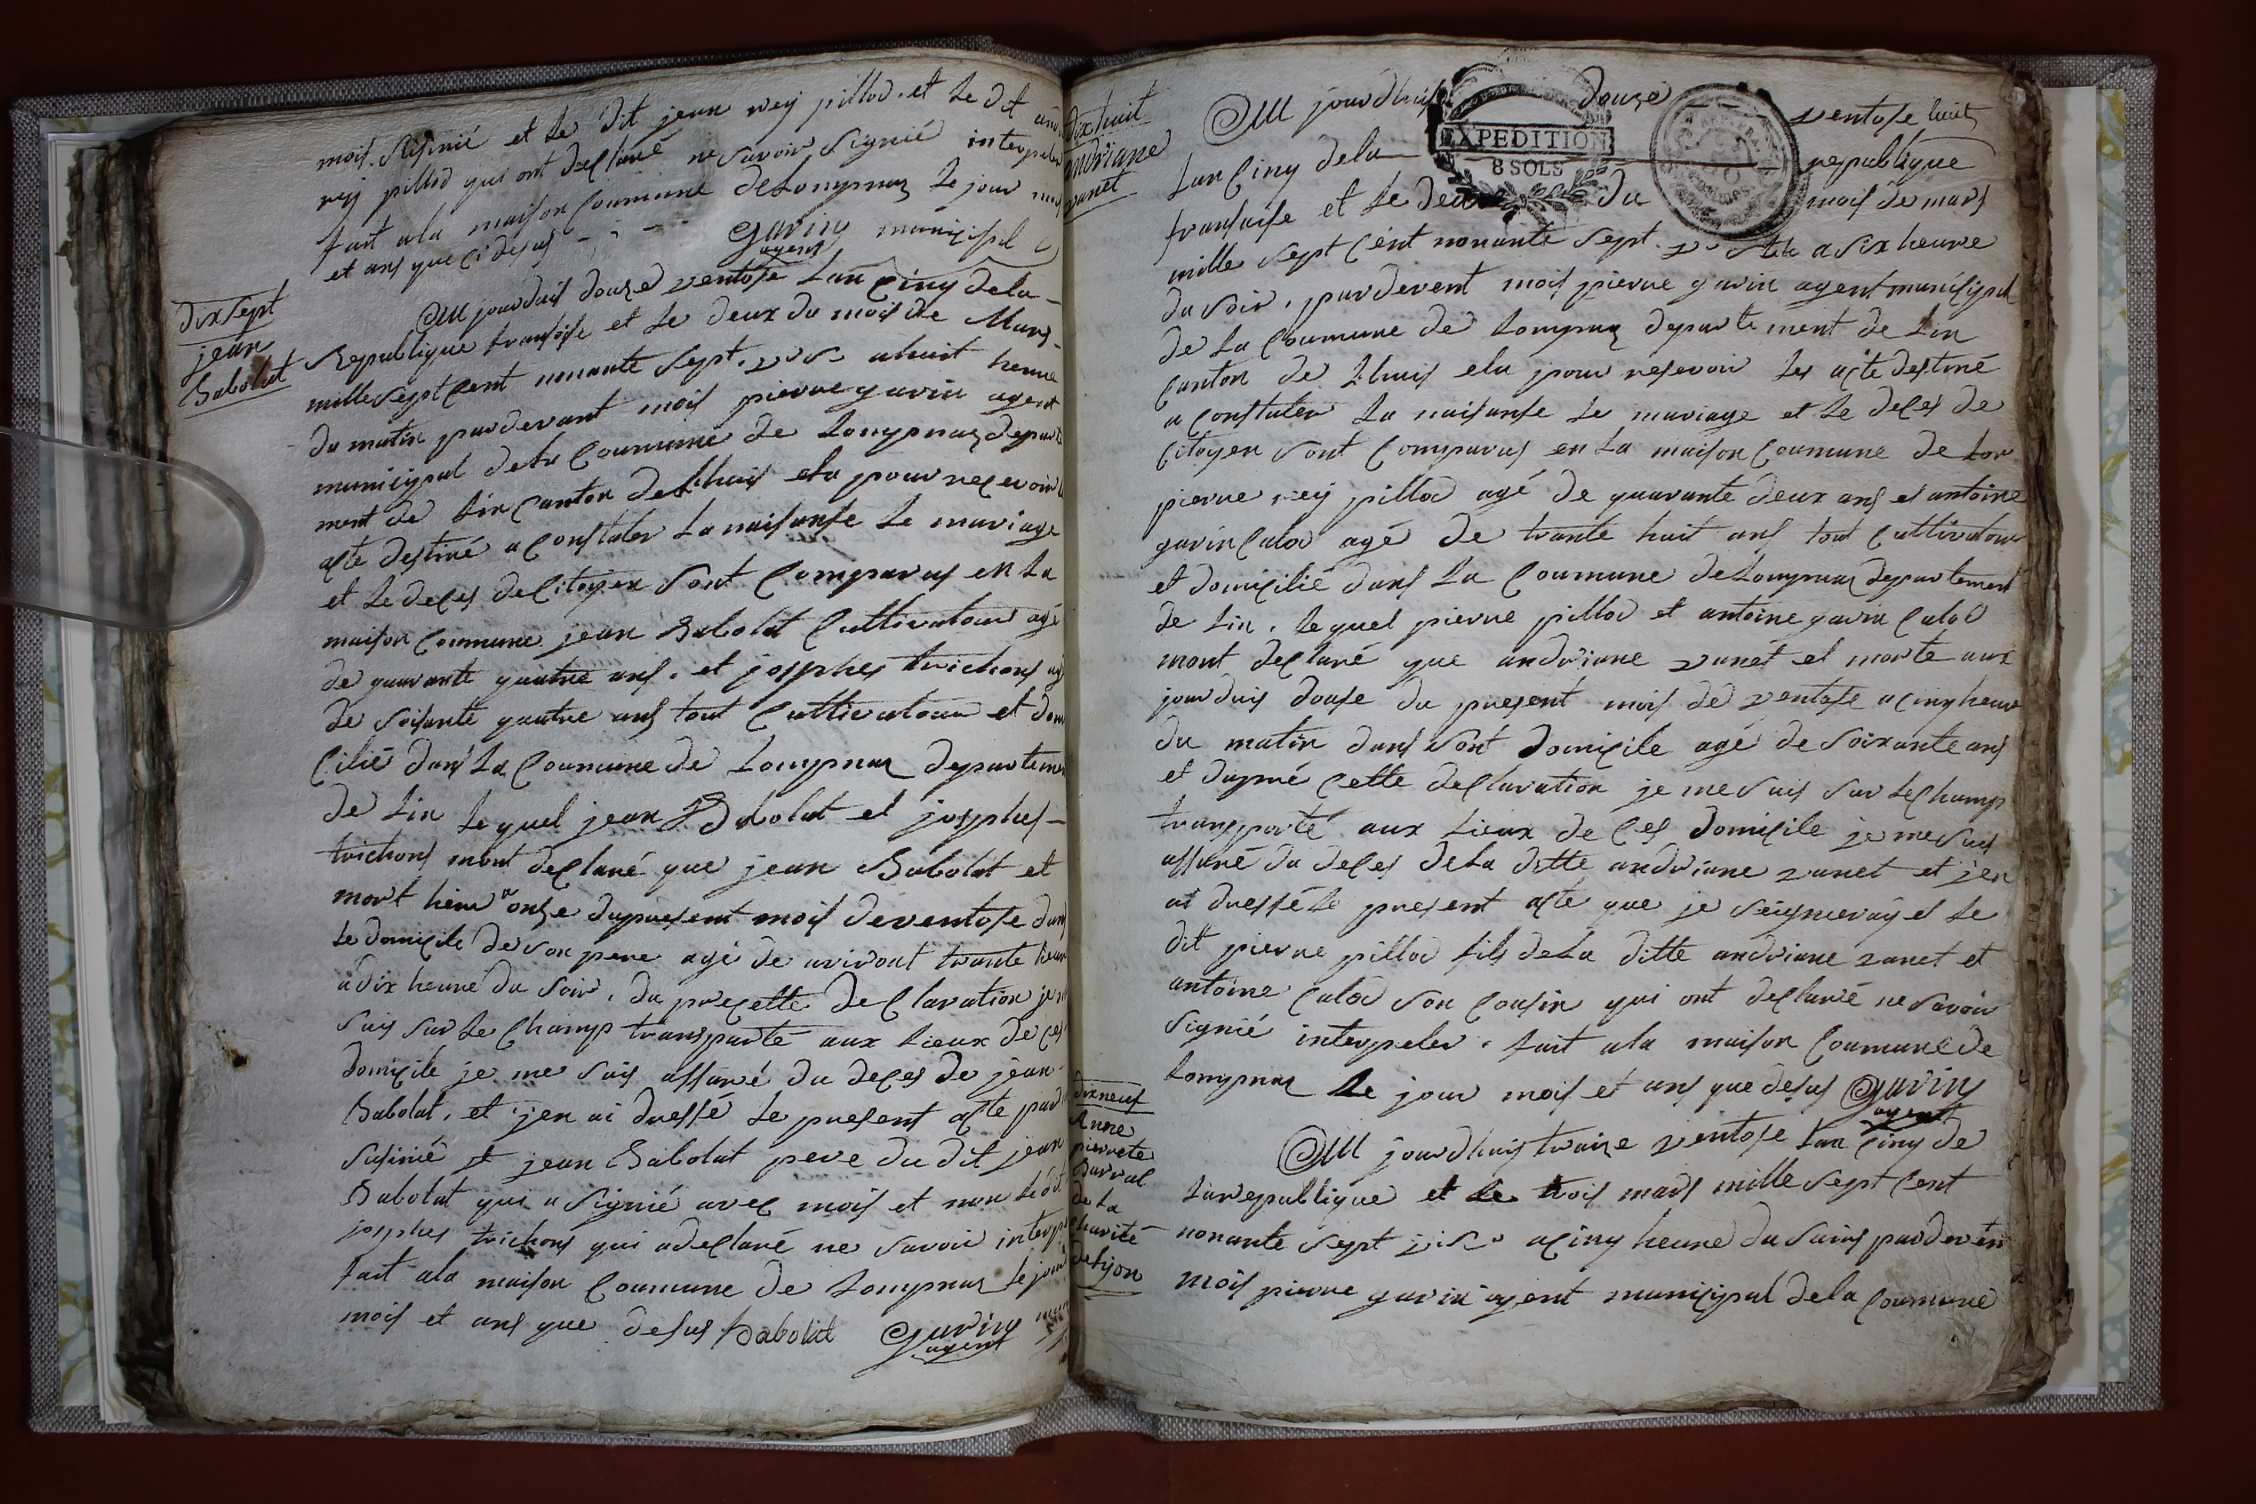 mois susinié et le dit jean rey pillod et le dit
rey pillod qui ont declaré ne savoir signié interpeler
fait ala maison Commune de Lompnaz le jour mois
et ans que ci desus gavin municipal
agent
dix sept
jean
Babolat
Au jourduis douze ventose lan cinq dela
Republique fransoise et le deux du mois de Mars
mille sept cent nonante sept. v. s. ahuit heure
du matin pardevant mois pierre gavin agent
municipal dela Coumune de Lompnaz departe
ment de Lin Canton de Lhuis elu pour recevoir l
acte destiné a Constater la naisanse le mariage
et le deces de Citoyen sont Comparus en la
maison Coumune jean Babolat Cultivatour agé
de quarante quatre ans. et josphes trichons agé
de soisante quatre ans tout Cultivatour et domi
Cilié dans la Coumune de Lompnaz departemen
de Lin lequel jean Babolat et josphes
trichons mont declaré que jean Babolat et
mort hiere onze dupresent mois deventose dans
le domicile de son pere agé de aviront trante
a dix heure du soir. du pre cette declaration je
suis sur le Champ transporté aux Lieux de ces
domicile je me suis assuré du deces de jean
Babolat, et jen ai dressé le present acte par
susinié et jean Babolat pere du dit jean
Babolat qui a signié avec mois et non ledit
josphes trichons qui a declaré ne savoir interp
fait ala maison Coumune de Lompnaz le jour
mois et ans que desus babolat gavin
agent
dix huit
andriane
vanet
Au jourdhuis douze ventose huit
Lan Cinq dela republique
fransaise et le deux du mois de mars
mille sept Cent nonante sept. v. stile a six heure
du soir, pardevent mois pierre gavin agent municipal
de la Coumune de Lompnaz departement de Lin
Canton de Lhuis elu pour resevoir les acte destiné
a Constater la naisanse le mariage et le deces de
Citoyen sont Comparus en la maison Coumune de Lon
pierre rey pillod agé de quarante deux ans et antoine
gavin Calod agé de trante huit ans tout Cultivatour
et domicilié dans la Coumune de Lompnaz departement
de Lin. lequel pierre pillod et antoine gavin Calod
mont declaré que andriane vanet et morte aux
jourduis douse du present mois de ventose a cinq heure
du matin dans sont domicile agé de soixante ans
et dapré Cette declaration je me suis sur le Champ
transporté aux Lieux de Ces domicile je me suis
assuré du deces dela ditte andriane vanet et jen
ai dressé le present acte que je seigneray et le
dit pierre pillod fils dela ditte andriane vanet et
antoine Calod son Cousin qui ont declaré ne savoir
signié interpeler. fait ala maison Coumune de
Lompnaz le jour mois et ans que desus gavin
agent
dix neuf
Anne
pierrete
Barral
de la
Charité
de lyon
Au jourdhuis traize ventose lan Cinq de
la republique et le trois mars mille sept Cent
nonante sept v. s. a Cinq heure du soirs parderen
mois pierre gavin agent municipal dela Coumune
EXPEDITION
8 SOLS